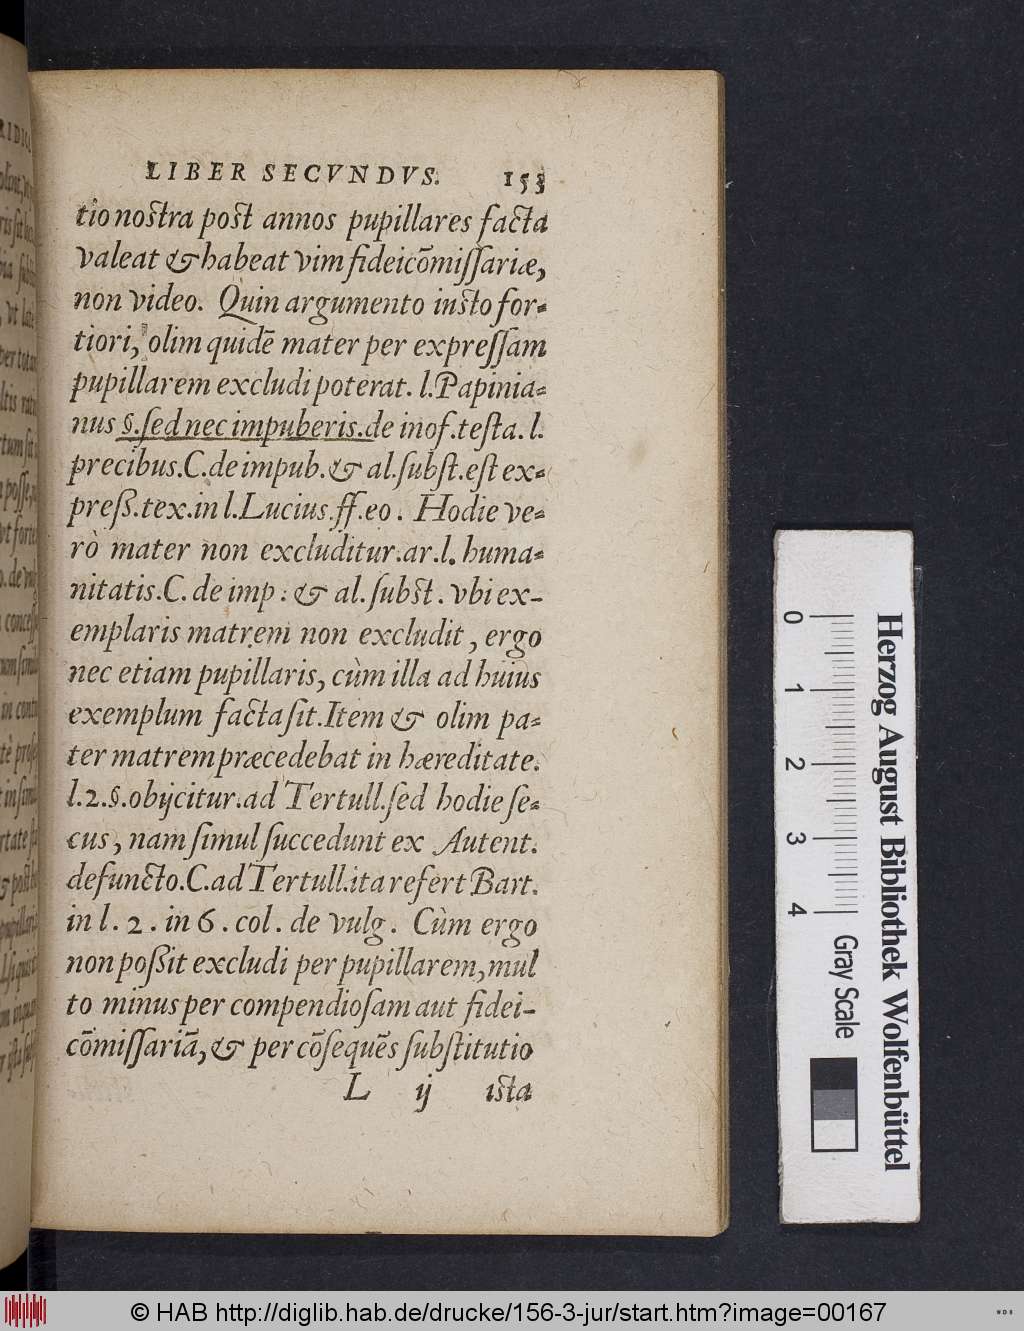 LIBER SECVNDVS. 153
tio nostra post annos pupillares facta
valeat & habeat vim fideicõmissariæ,
non video. Quin argumento insto for-
tiori, olim quidẽ mater per expressam
pupillarem excludi poterat. l. Papinia-
nus §. sed nec impuberis. de inof. testa. l.
precibus. C. de impub. & al. subst. est ex-
preß. tex. in l. Lucius. ff. eo. Hodie ve-
rò mater non excluditur. ar. l. huma-
nitatis. C. de imp. & al. subst. vbi ex-
emplaris matrem non excludit, ergo
nec etiam pupillaris, cùm illa ad huius
exemplum facta sit. Item & olim pa-
ter matrem præcedebat in hæreditate.
l. 2. §. obijcitur. ad Tertull. sed hodie se-
cus, nam simul succedunt ex Autent.
defuncto. C. ad Tertull. ita refert Bart.
in l. 2. in 6. col. de vulg. Cùm ergo
non poßit excludi per pupillarem, mul
to minus per compendiosam aut fidei-
cõmissariã, & per cõsequẽs substitutio
L ij ista
Herzog August Bibliothek Wolfenbüttel
0 1 2 3 4 Gray Scale
© HAB http://diglib.hab.de/drucke/156-3-jur/start.htm?image=00167